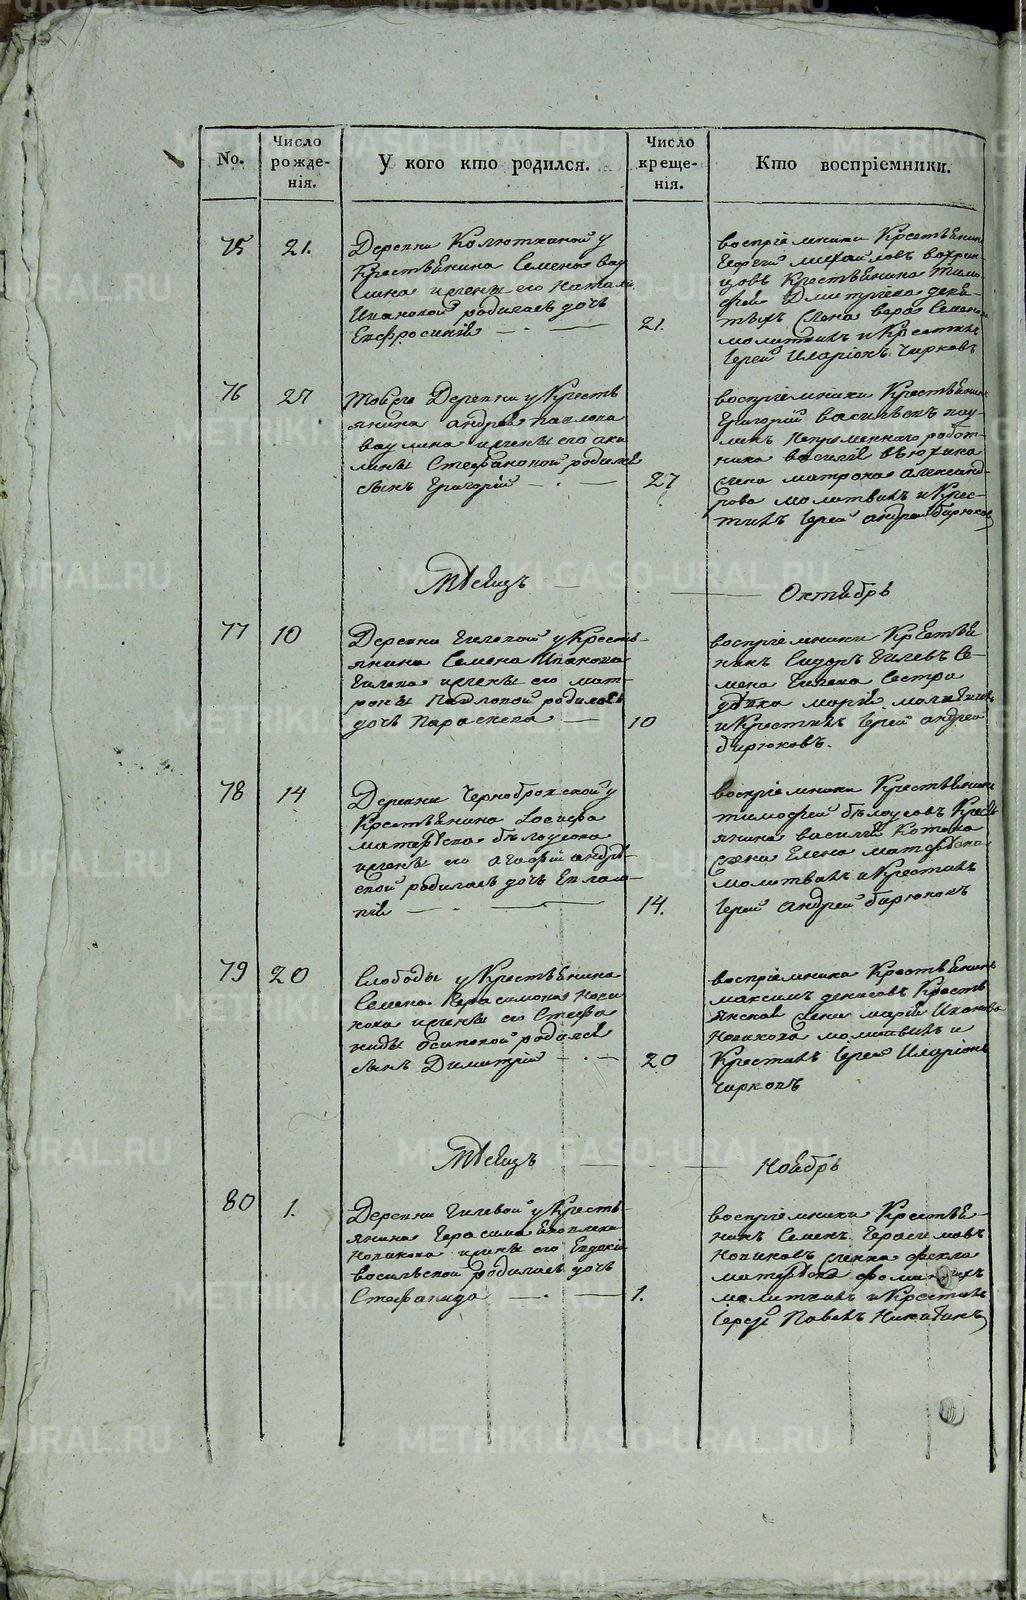 No.
Число рожде-нія.
У кого кто родился.
Число креще-нія.
Кто воспріемники.
75
21.
Деревни Колюткиной у
Крестьянина Семена Вау
лина и жены его Натальи
Ивановой родилась дочь
Евфросинія
21.
воспріемники Крестьянинъ
Георгій Михайловъ
Крестьянина Тимо
фея Дмитріева
жена Вера Семенова
молитвилъ и Крестилъ
Іерей Иларіонъ Чирковъ
76
27
Той же Деревни у Кресть
янина Андрея Павлова
Ваулина и жены его Аки
лины Стефановой родился
сынъ Григорій
27
воспріемники Крестьянинъ
Григорій Васильевъ Вау
линъ Непременного работ-
ника Василія Вьюхина
жена Матрона Александ-
рова молитвилъ и Крес-
тилъ Іерей Андрей Бирюковъ
Мѣсяцъ
Октябрь
77
10
Деревни Гилевой у Кресть-
янина Семена Иванова
Гилева и жены его Мат-
роны Павловой родилась
дочь Параскева
10
воспріемники Крестья
нинъ Сидоръ Гилевъ Се-
мена Гилева Сестра
девка Марія молитвилъ
и Крестилъ Іерей Андрей
Бирюковъ.
78
14
Деревни Чернобровской у
Крестьянина Іосифа
Матвѣева Бѣлоусова
и жены его Агафіи Андре-
евой родилась дочь Евлам-
пія
14.
воспріемники Крестьянинъ
Тимофей Бѣлоусовъ Кресть
янина Василія Котова
жена Елена Матвѣева
молитвилъ и Крестилъ
Іерей Андрей Бирюковъ
79
20
Слободы у Крестьянина
Семена Герасимова Нови
кова и жены его Стефа
ниды Осиповой родился
сынъ Димитрій
20
воспріемники Крестьянинъ
Максимъ Денисовъ Кресть
янская жена Марія Иванова
Новикова молитвилъ и
Крестилъ Іерей Иларіонъ
Чирковъ
Мѣсяцъ
Ноябрь
80
1.
Деревни Гилевой у Кресть-
янина Герасима Яковлева
Новикова и жены его Евдокіи
Васильевой родилась дочь
Стефанида
1.
воспріемники Крестья-
нинъ Семенъ Герасимовъ
Новиковъ женка Фекла
Матвѣева Фоминыхъ
молитвилъ и Крестилъ
Іерей Павелъ Никитинъ
METRIKI.GASO-URAL.RU